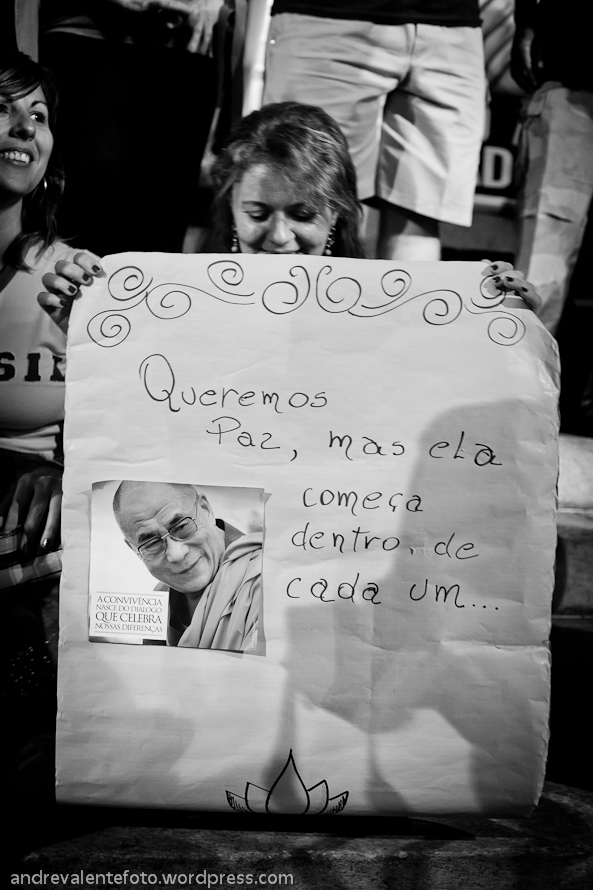 Queremos
Paz, mas ela
começa
dentro, de
cada um...
A CONVIVÊNCIA
NASCE DO DIÁLOGO
QUE CELEBRA
NOSSAS DIFERENÇAS
andrevalentefoto.wordpress.com